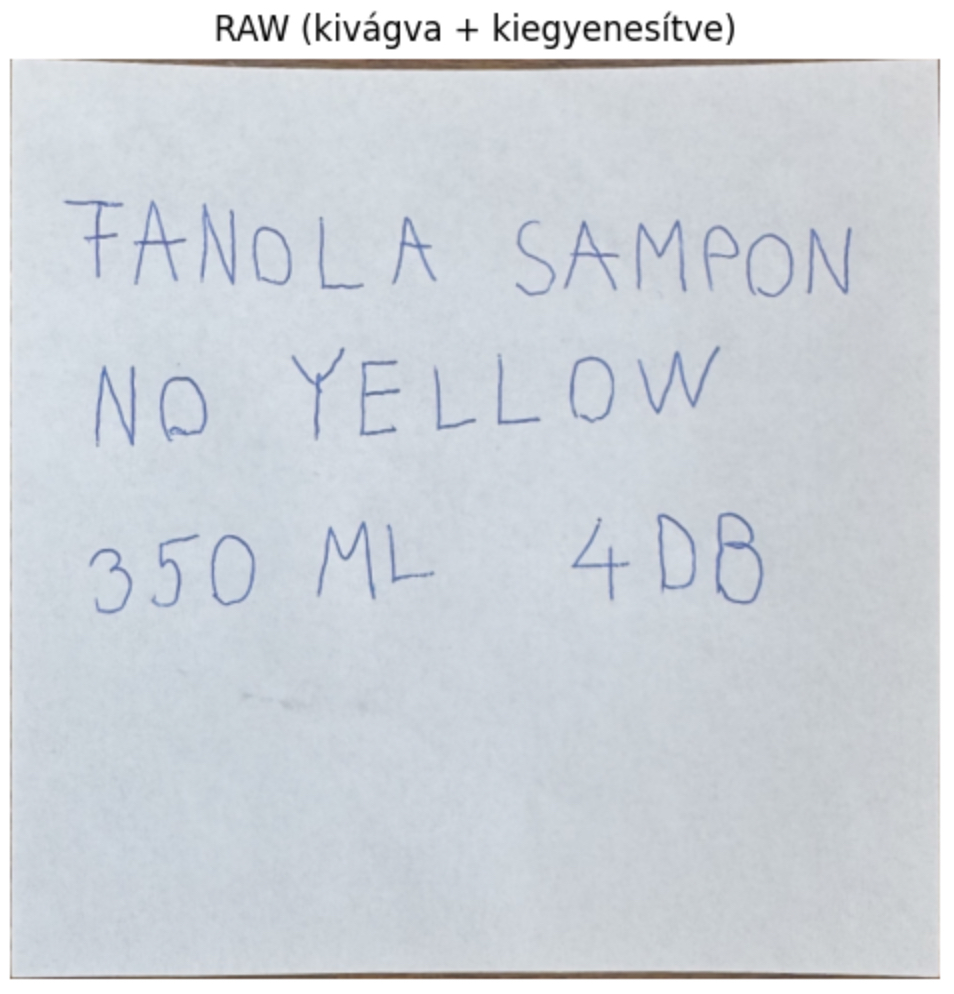 RAW (kivágva + kiegyenesítve)
FANOLA SAMPON
NO YELLOW
350 ML 4DB